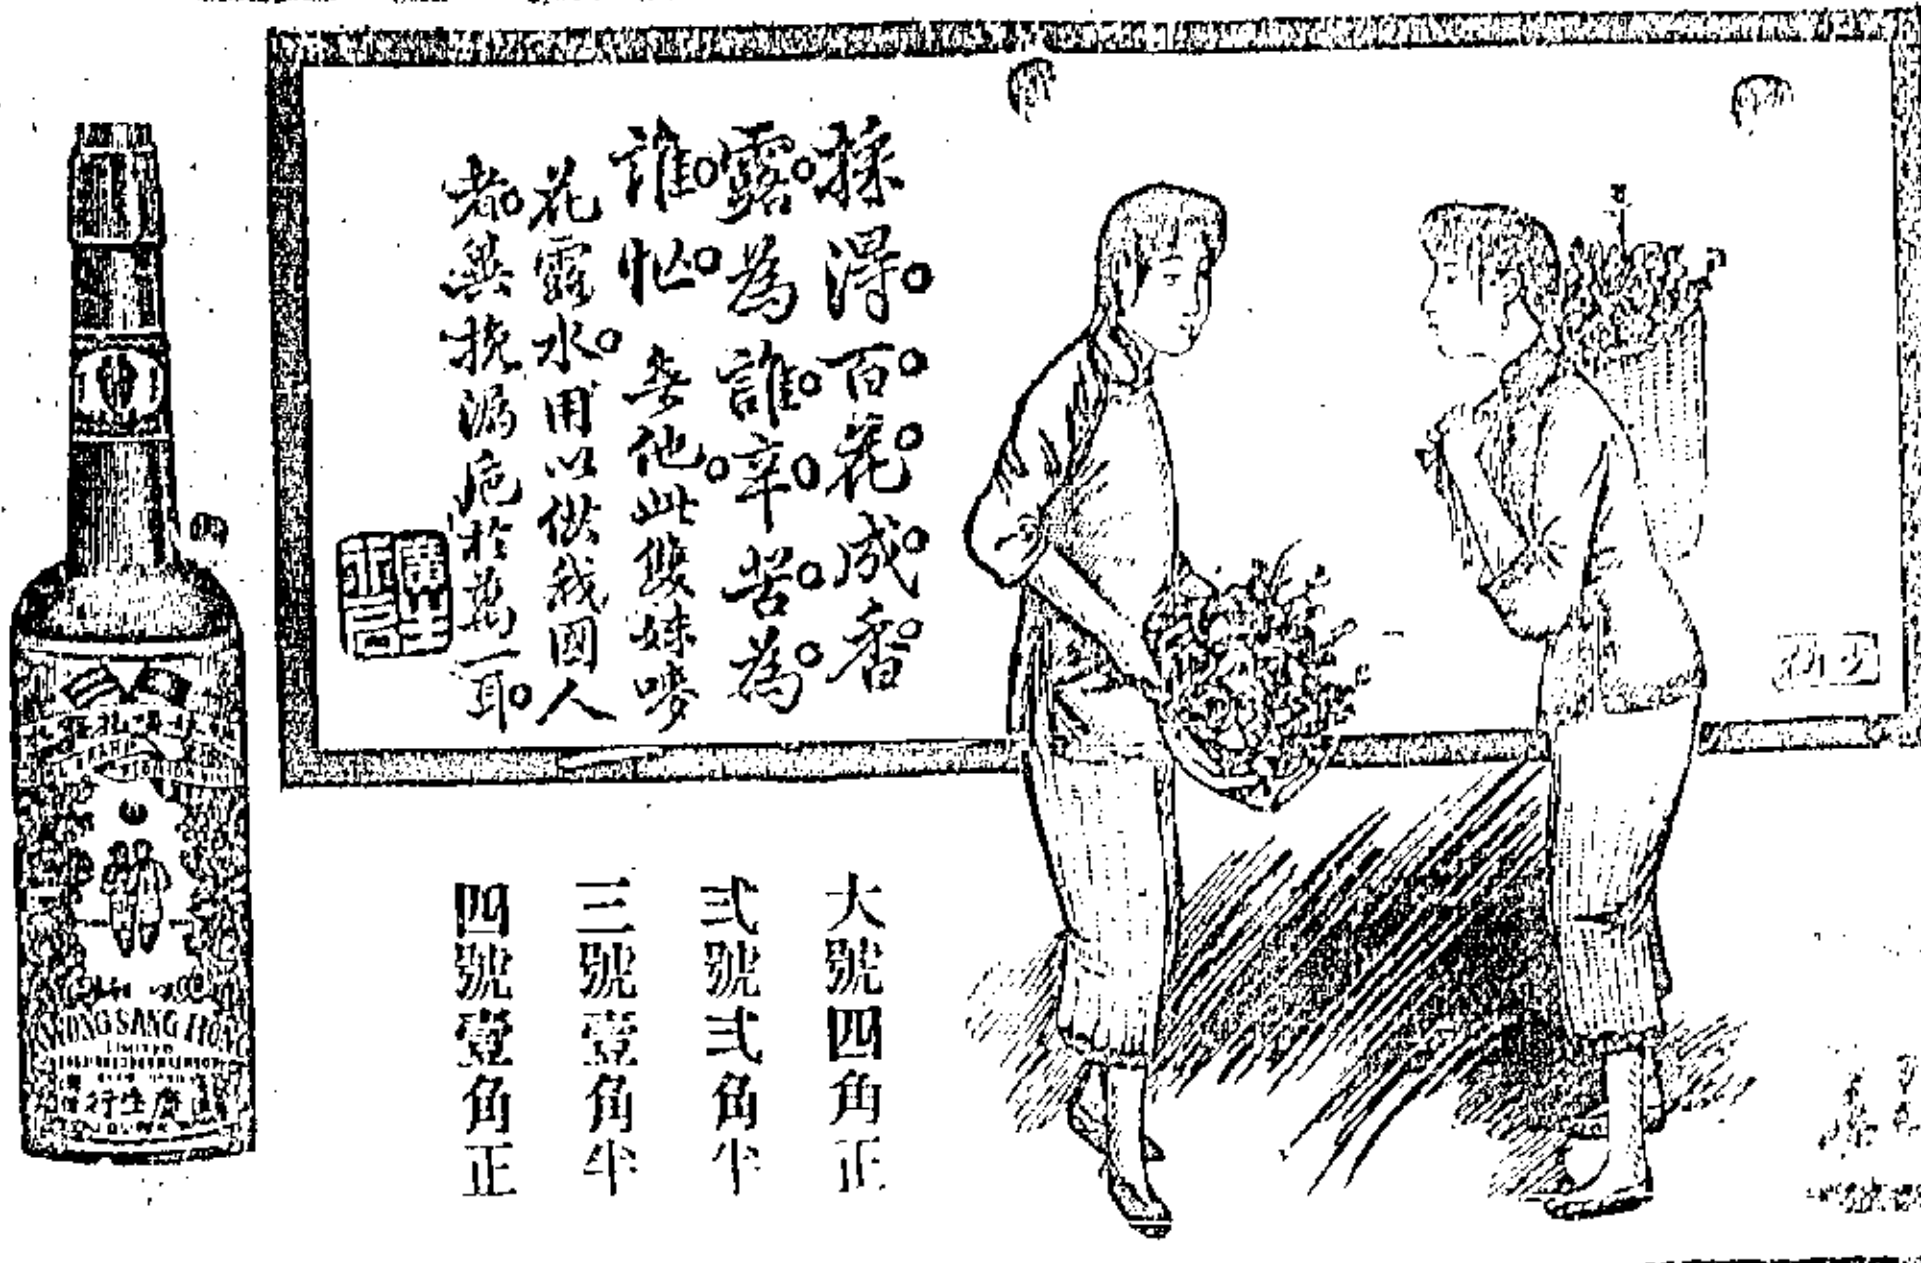 採得百花成香
露為誰辛苦為
誰忙 無他此雙妹嘜
花露水用以供我國人
者冀挽漏卮於萬一耳
廣生行
大號四角正
弍號弍角半
三號壹角半
四號壹角正
KWONG SANG HONG
LIMITED
廣生行